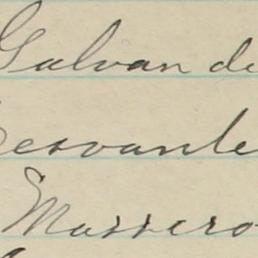 Galvan de
Cervante
Massero